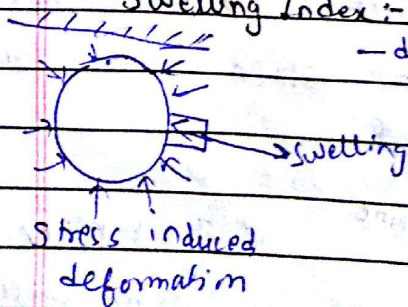 Swelling Index :-
— d
Swelling
Stress induced
deformation